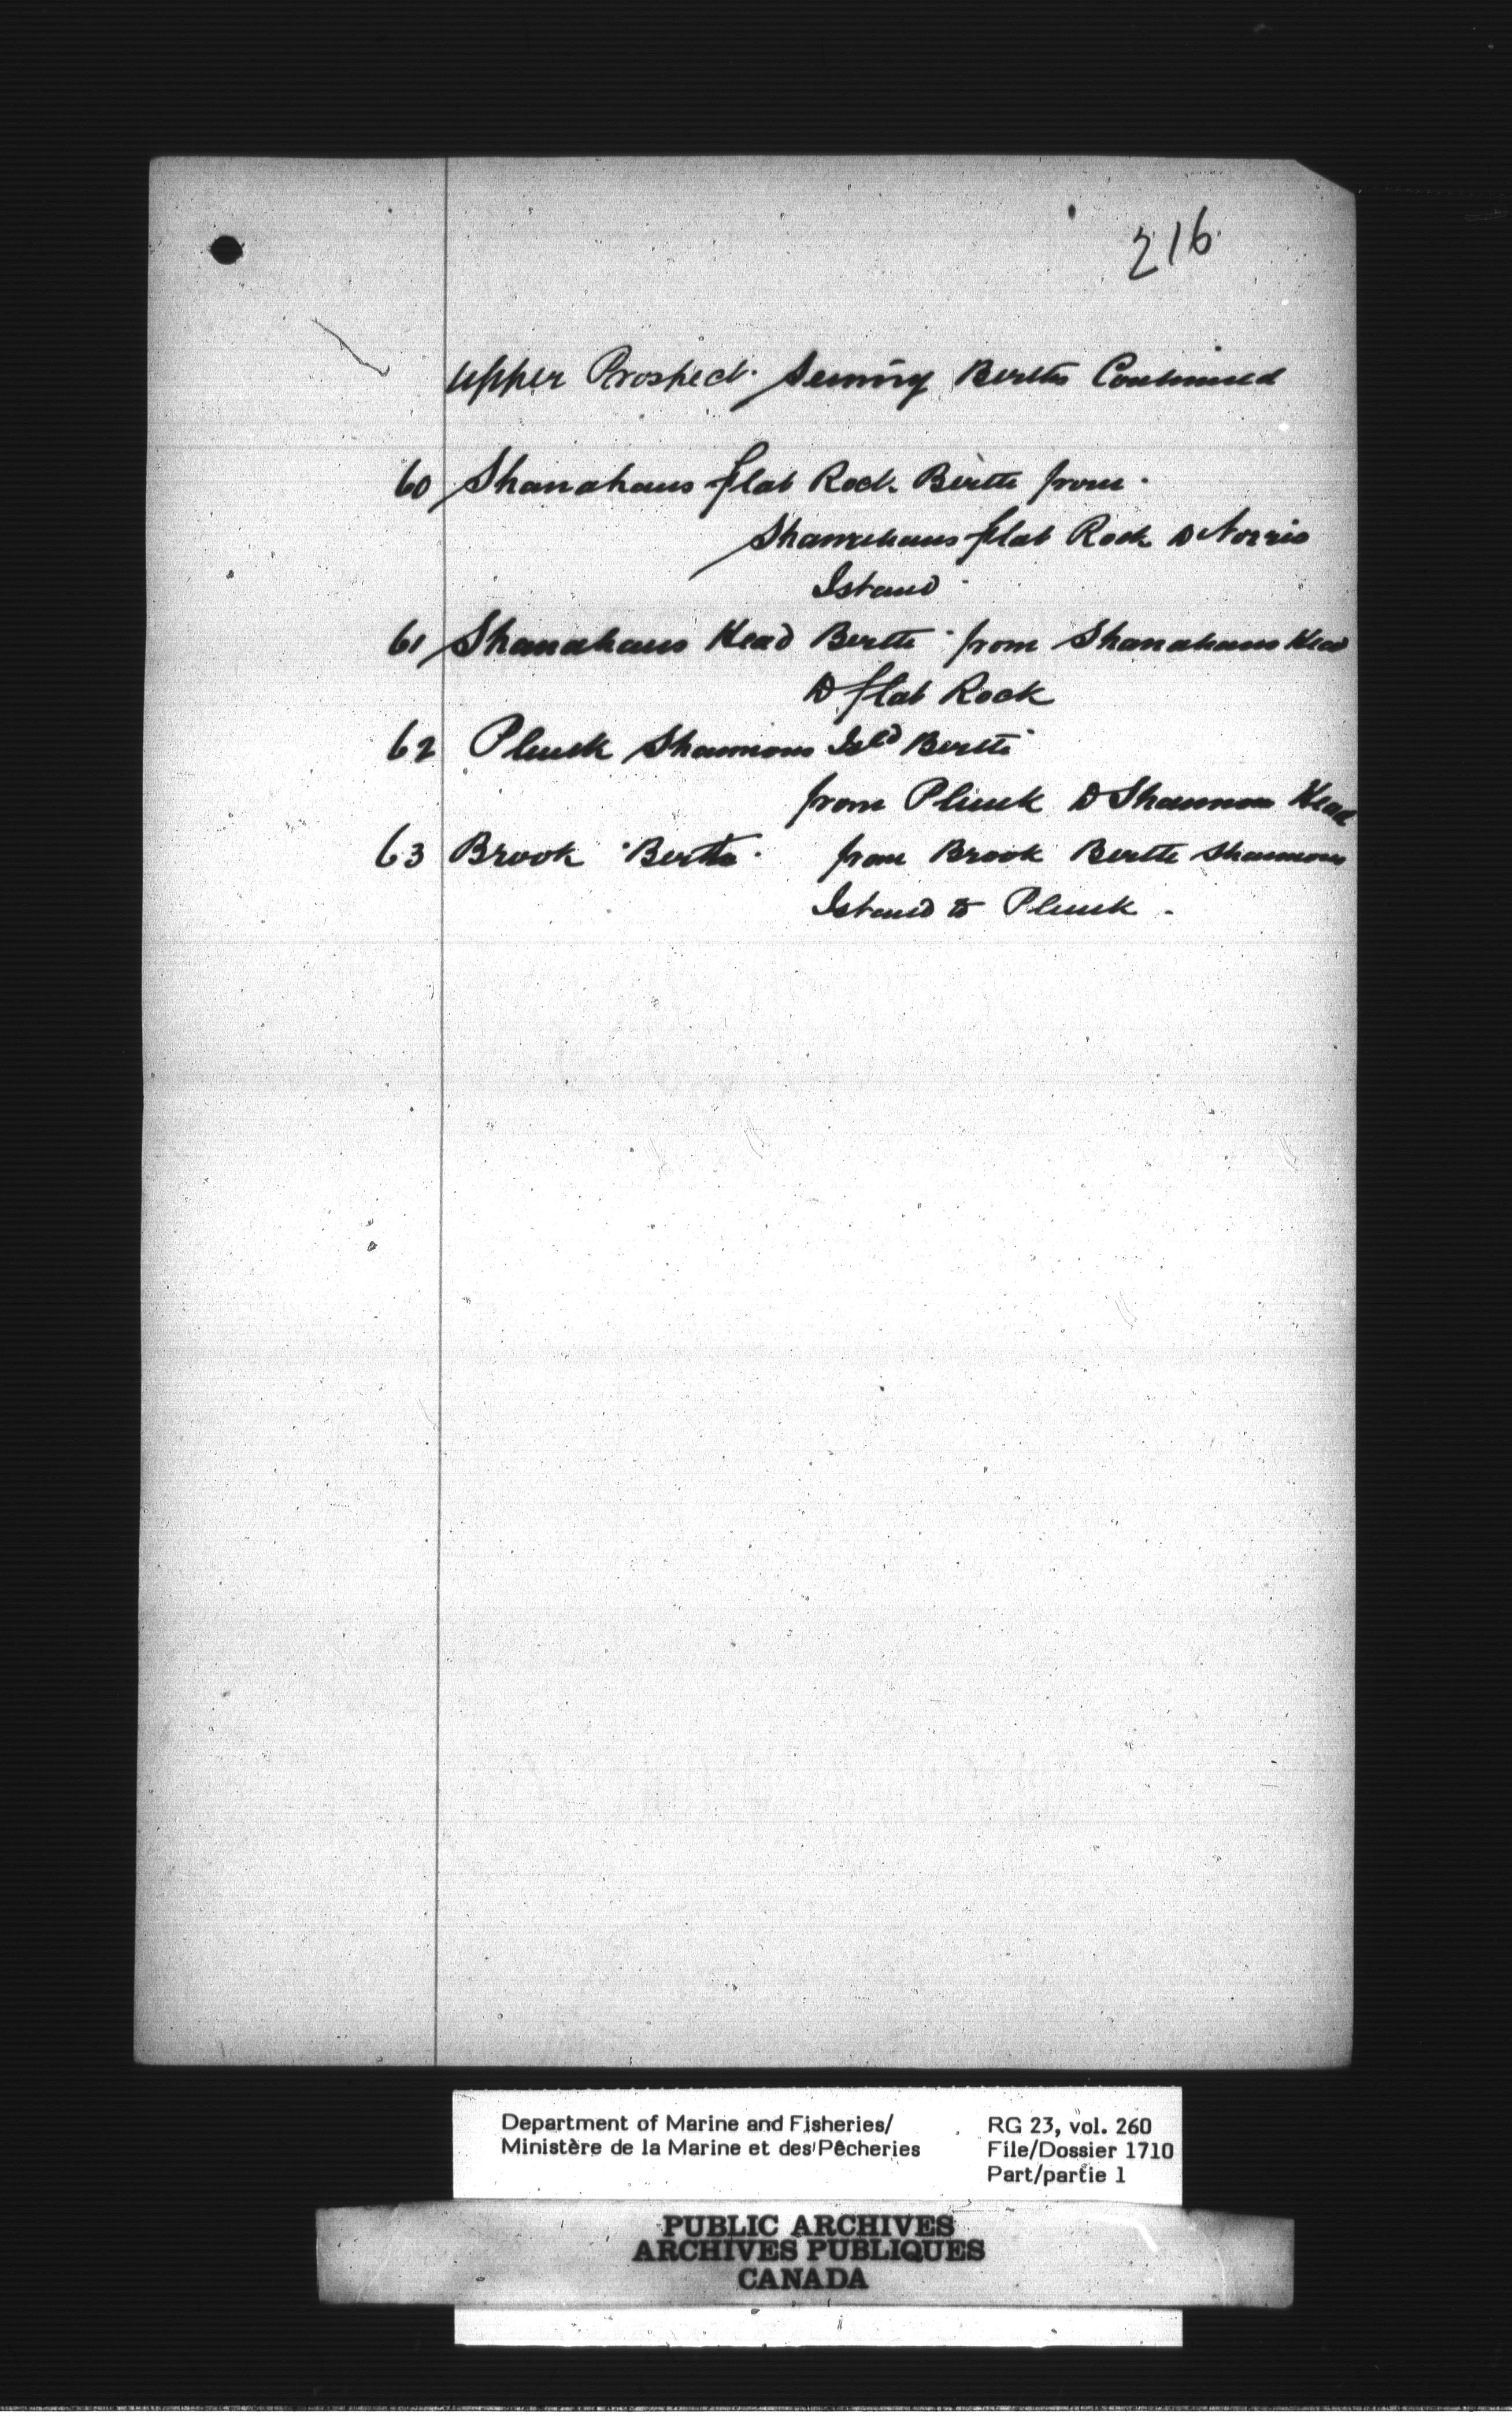 216
Upper Prospect. Seining Berths Continued
60 Shanahans flat Rock Berth from
Shanahans flat Rock to Norris
Island
61 Shanahans Head Berth from Shanahans Head
to flat Rock
62 Pluck Shannons Isld Berth
from Pluck to Shannon Head
63 Brook Berth. from Brook Berth Shannons
Island to Pluck.
Department of Marine and Fisheries/ RG 23, vol. 260
Ministère de la Marine et des Pêcheries File/Dossier 1710
Part/partie 1
PUBLIC ARCHIVES
ARCHIVES PUBLIQUES
CANADA